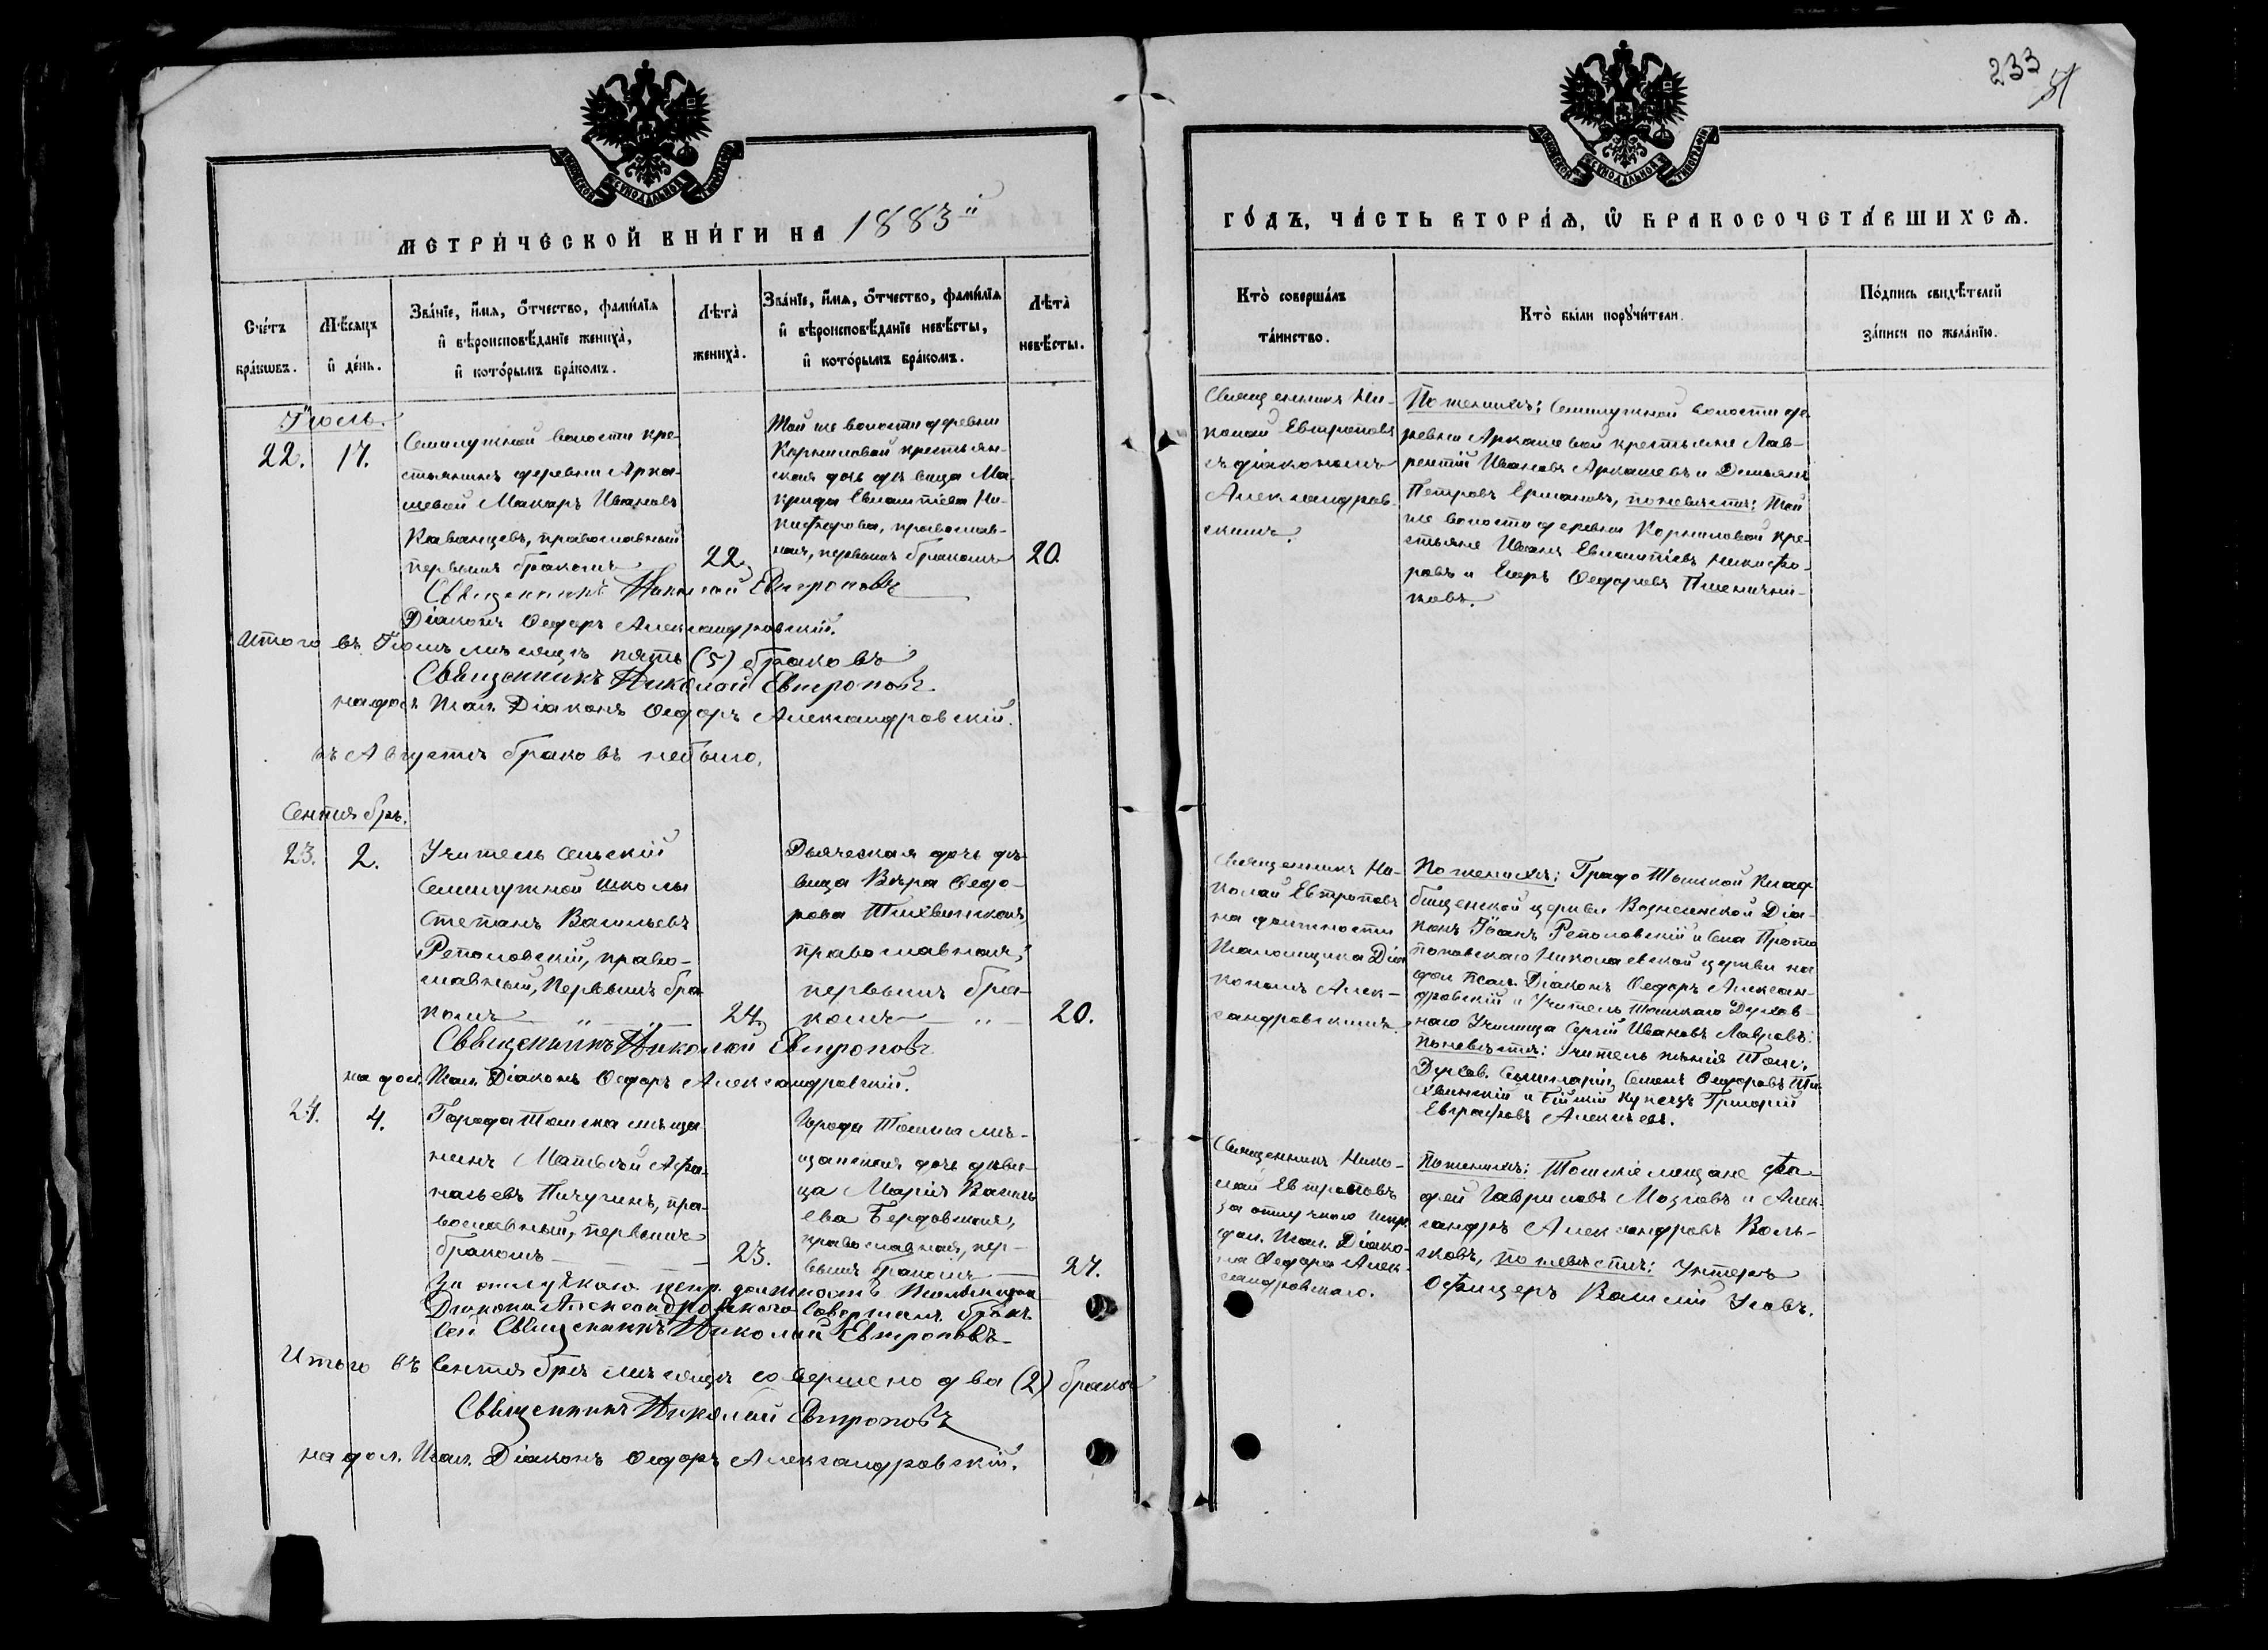 233
51
СѴНОДАЛЬНОЙ
ТИПОГРАФІИ
СѴНОДАЛЬНОЙ
ТИПОГРАФІИ
МЕТРИ́ЧЕСКОЙ КНИ́ГИ НА 1883й
Сче́тъ
бра́кѡвъ.
Мѣ́сяцъ
и҆ де́нь.
Зва́нїе, и҆́мѧ, ѻ҆́тчество, фами́лїѧ
и҆ вѣроисповѣ́данїе жениха̀,
и҆ кото́рымъ бра́комъ.
Лѣта̀
жениха̀.
Зва́нїе, и҆́мѧ, ѻ҆́тчество, фами́лїѧ
и҆ вѣроисповѣ́данїе невѣ́сты,
и҆ кото́рымъ бра́комъ.
Лѣта̀
невѣ́сты.
Іюль.
22.
17.
Семилужной волости кре-
стьянинъ деревни Арка-
шевой Макаръ Ивановъ
Каванцевъ, православный
первымъ бракомъ
22.
Той же волости деревни
Корниловой крестьян-
ская дочь дѣвица Ма-
крида Евлампіева Ни-
кифорова, православ-
ная, первымъ бракомъ
20.
Священникъ Николай Евтроповъ
Діаконъ Ѳедоръ Александровскій.
Итого въ Іюлѣ мѣсяцѣ пять (5) браковъ
Священникъ Николай Евтроповъ
на дол. Псал. Діаконъ Ѳедоръ Александровскій.
въ Августѣ браковъ небыло.
Сентябрь.
23.
2.
Учитель Сельскій
Семилужной школы
Степанъ Васильевъ
Реполовскій, право-
славный, первымъ бра-
комъ
24.
Дьяческая дочь дѣ-
вица Вѣра Ѳедо-
рова Тихвинская,
православная,
первымъ бра-
комъ
20.
Священникъ Николай Евтроповъ
на дол. Псал. Діаконъ Ѳедоръ Александровскій.
24.
4.
Города Томска мѣща-
нинъ Матвѣй Афа-
насьевъ Пичугинъ, пра-
вославный, первымъ
бракомъ
23.
Города Томска мѣ-
щанская дочь дѣви-
ца Марія Василь-
ева Бердовская,
православная, пер-
вымъ бракомъ
24.
За отлучкою испр. должность Псаломщика
Діакона Александровскаго совершалъ бракъ
сей Священникъ Николай Евтроповъ
Итого въ Сентябрѣ мѣсяцѣ совершено два (2) брака
Священникъ Николай Евтроповъ
на дол. Псал. Діаконъ Ѳедоръ Александровскій.
ГО́ДЪ, ЧА́СТЬ ВТОРА́Ѧ, Ѽ БРАКОСОЧЕТА́ВШИХСѦ.
Кто̀ соверша́лъ
та́инство.
Кто̀ бы́ли порꙋчи́тели.
По́дпись свидѣ́телей
за́писи по жела́нїю.
Священникъ Ни-
колай Евтроповъ
съ діакономъ
Александров-
скимъ.
По женихѣ: Семилужной волости де-
ревни Аркашевой крестьяне Лав-
рентій Ивановъ Аркашевъ и Демьянъ
Петровъ Ермановъ, по невѣстѣ: Той
же волости деревни Корниловой кре-
стьяне Иванъ Евлампіевъ Никифо-
ровъ и Егоръ Ѳедоровъ Пшенични-
ковъ.
Священникъ Ни-
колай Евтроповъ
на должности
Псаломщика Діа-
кономъ Алек-
сандровскимъ.
По женихѣ: Градо Томской Клад-
бищенской церкви Вознесенской Діа-
конъ Іоанъ Реполовскій и Села Прото-
поповскаго Николаевской церкви на
дол. Псал. Діаконъ Ѳедоръ Алексан-
дровскій и Учитель Томскаго Духов-
наго Училища Сергій Ивановъ Лавровъ:
По невѣстѣ: Учитель пѣнія Томс.
Духов. Семинаріи, Семенъ Ѳедоровъ Ти-
хвинскій и Бійскій Купецъ Григорій
Евграфовъ Алексѣевъ.
Священникъ Нико-
лай Евтроповъ
за отлучкою испр.
дол. Псал. Діако-
на Ѳедора Алек-
сандровскаго.
По женихѣ: Томскіе мещане Фа-
дей Гавриловъ Мозговъ и Алек-
сандръ Александровъ Воль-
сковъ, по невѣстѣ: Унтеръ
Офицеръ Василій Усовъ.